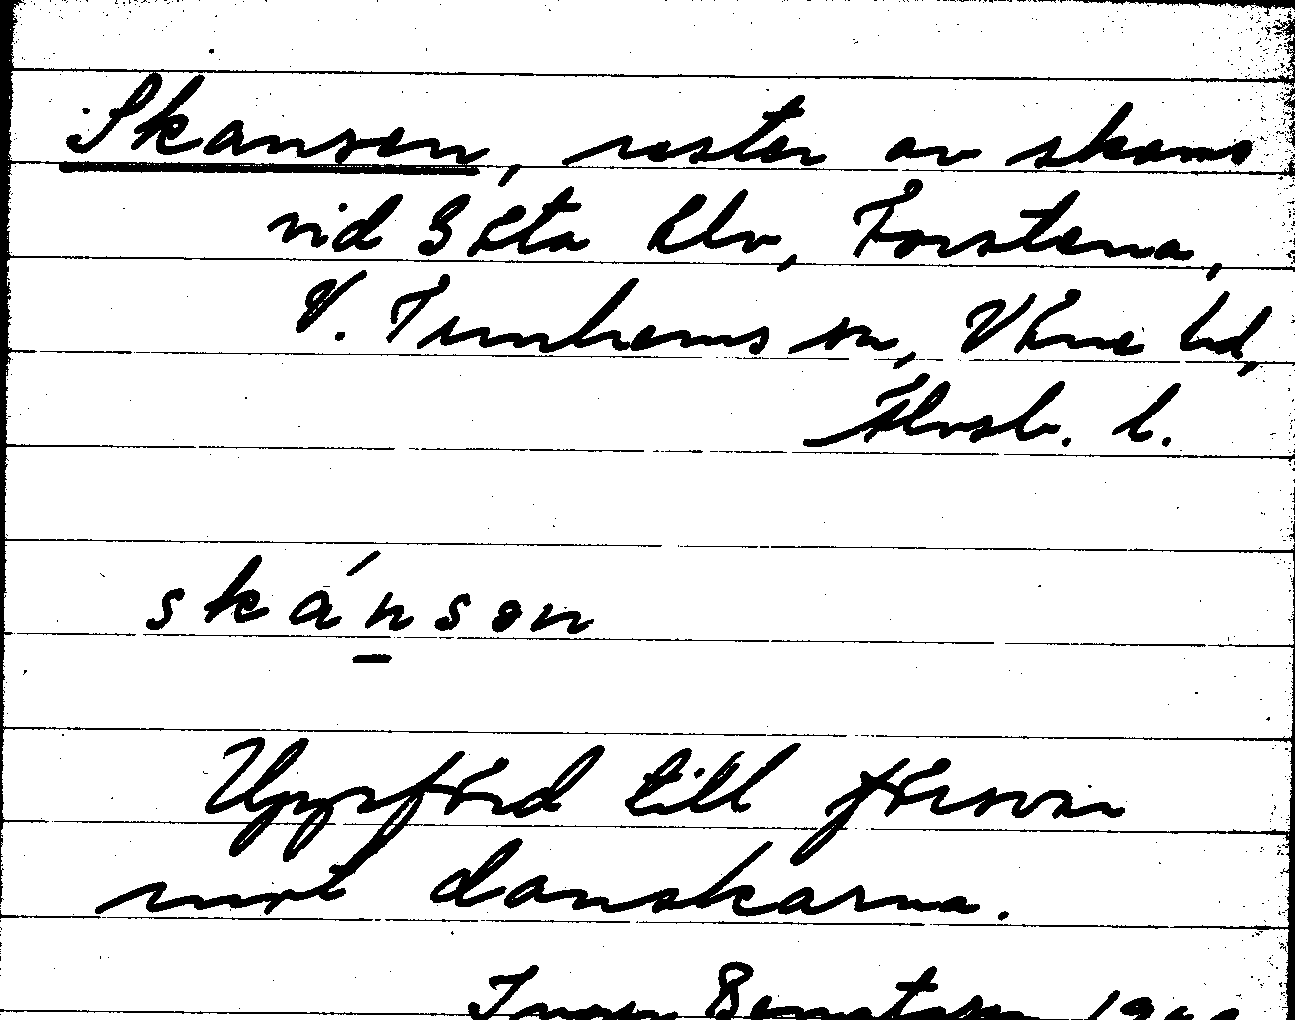 Skansen, rester av skans
vid Göta älv, Forstena,
V. Tunhems sn, Väne hd,
Älvsb. l.
skánsən
Uppförd till försvar
mot danskarna.